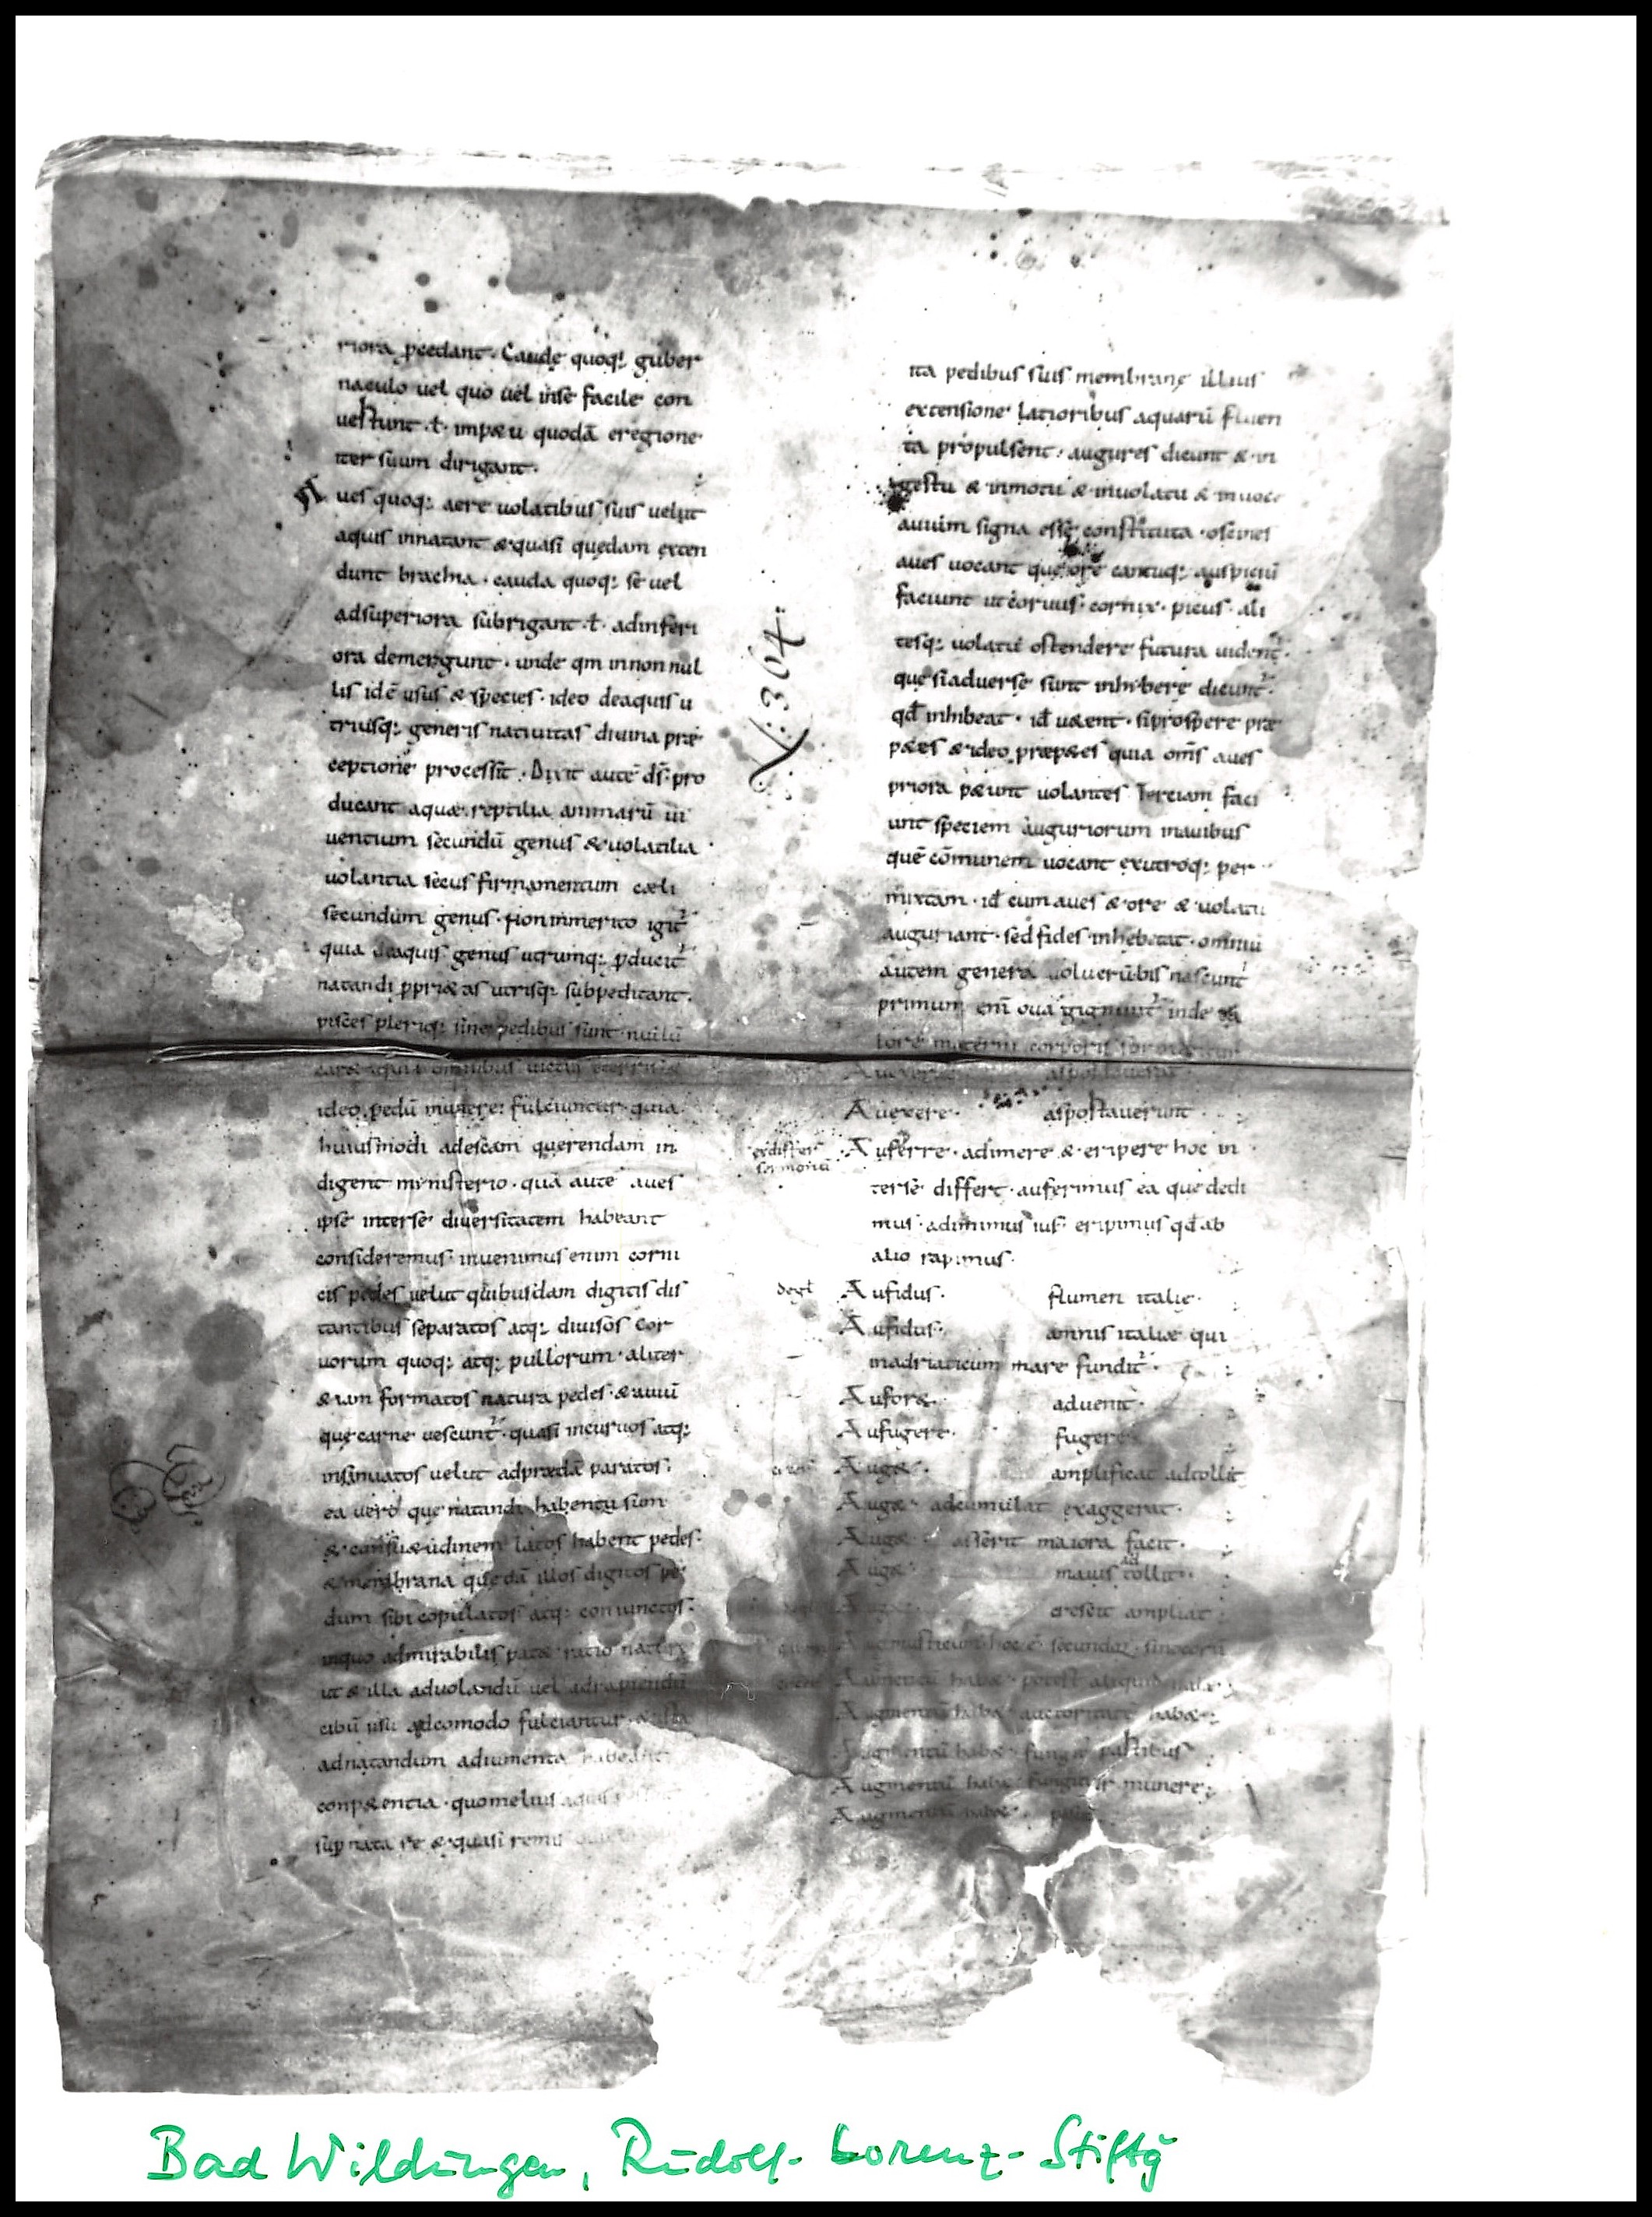 riora p̄cedant · Caude quoq: guber
naculo uel quo uel inse facile con
uertunt · ł · imp&u quodā eregione
iter suum dirigant ·
A ues quoq: aere uolatibus suis uelut
aquis innatant & quasi quedam exten
dunt brachia · cauda quoq: se uel
adsuperiora subrigant · ł · adinferi
ora demergunt · unde qm̄ innon nul
lis idē usus & species · ideo deaquis u
triusq: generis natiuitas diuina præ
ceptione processit · Dixit autē ds̄ · pro
ducant aquæ reptilia animarū ui
uentium secundū genus & uolatilia
uolantia secus firmamentum cæli
secundum genus · Non inmerito igit̄
quia deaquis genus utrumq: p̄ducit̄
natandi p̄pri&as utrisq: subpeditant ·
pisces pleriq: sine pedibus sunt · nullū
ideo pedū munere fulciuntur · quia
huiusmodi adescam querendam in
digent ministerio · quā autē aues
ipse interse diuersitatem habeant
consideremus · inuenimus enim corni
cis pedes uelut quibusdam digitis dis
tantibus separatos atq: diuisos cor
uorum quoq: atq: pullorum · aliter
&iam formatos natura pedes · & auiū
que carne uescunt̄ · quasi incuruos atq:
insinuatos uelut adprædā paratos ·
ea uero que natandi habent usum
& consu&udinem latos habent pedes ·
& membrana quedā illos digitos pe
dum sibi copulatos atq: coniunctos ·
inquo admirabilis pat& ratio naturæ
ut & illa aduolandū uel adrapiendū
cibū usu adcomodo fulciantur ·
adnatandum adiumenta habeant
conp&entia · quomelius aquis
sup̄ nata re & quasi remis
X: 364
ita pedibus suis membrane illius
extensione latioribus aquarū fluen
ta propulsent · augures dicunt & in
gestu & inmotu & inuolatu & inuoce
auium signa esse constituta · oscines
aues uocant que ore cantuq: auspiciū
faciunt ut coruus · cornix · picus · ali
tesq: uolatu ostendere futura uident̄ ·
que si aduerse sunt inhibere dicunt̄ ·
qđ inhibeat · iđ u&ent · si prospere præ
p&es & ideo præp&es quia om̄s aues
priora p&unt uolantes Terciam faci
unt speciem auguriorum inauibus
quē cōmunem uocant exutroq: per
mixtam · iđ cum aues & ore & uolatu
auguriant · sed fides inhebetat · omniū
autem genera uolucrū bis nascunt̄
primum enī oua gignunt̄ inde
lore materni corporis formantur
A uexere · asportauerunt ·
A uferre · adimere & eripere hoc in
terse differt · auferimus ea que dedi
mus · adimimus ius · eripimus qđ ab
alio rapimus ·
degł A ufidus · flumen italie ·
A ufidus · amnis italiæ qui
inadriaticum mare fundit̄ ·
A ufor& · aduenit ·
A ufugere · fugere
A ug& · amplificat adtollit
A ug& · adcumulat exaggerat ·
A ug& · asserit maiora facit ·
A ug& · mauis adtollit ·
crescit ampliat ·
A ugmentū hab& · auctoritatē hab& ·
A ugmentū hab& · fungit̄ partibus
A ugmentū hab& · fungitur munere ·
A ugmentū hab& ·
Bad Wildungen, Rudolf-Lorenz-Stiftg